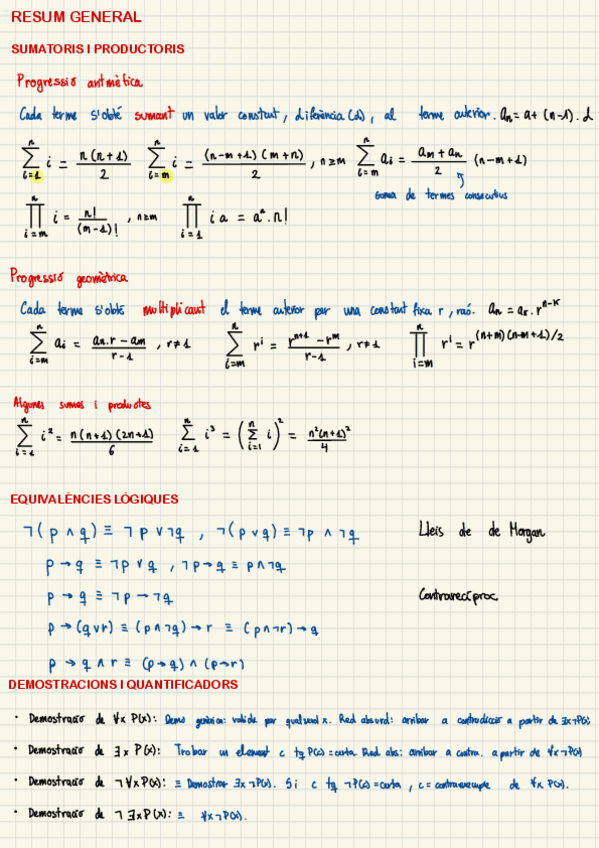 RESUM GENERAL
SUMATORIS I PRODUCTORIS
Progressió aritmètica
Cada terme s'obté sumant un valor constant, diferència (d), al terme anterior. aₙ = a + (n-1).d
∑ⁿᵢ₌₁ i = n(n+1)/2   ∑ⁿᵢ₌ₘ i = (n-m+1)(m+n)/2 , n≥m   ∑ⁿᵢ₌ₘ aᵢ = (aₘ+aₙ)/2 (n-m+1)
soma de termes consecutius
∏ⁿᵢ₌ₘ i = n!/(m-1)! , n≥m   ∏ⁿᵢ₌₁ i a = aⁿ.n!
Progressió geomètrica
Cada terme s'obté multiplicant el terme anterior per una constant fixa r, raó. aₙ = aₖ.rⁿ⁻ᴷ
∑ⁿᵢ₌ₘ aᵢ = (aₙ.r - aₘ)/(r-1) , r≠1   ∑ⁿᵢ₌ₘ rⁱ = (rⁿ⁺¹ - rᵐ)/(r-1) , r≠1   ∏ⁿᵢ₌ₘ rⁱ = r^((n+m)(n-m+1)/2)
Algunes sumes i productes
∑ⁿᵢ₌₁ i² = n(n+1)(2n+1)/6   ∑ⁿᵢ₌₁ i³ = (∑ⁿᵢ₌₁ i)² = n²(n+1)²/4
EQUIVALÈNCIES LÒGIQUES
¬(p ∧ q) ≡ ¬p ∨ ¬q , ¬(p ∨ q) ≡ ¬p ∧ ¬q   Lleis de de Morgan
p → q ≡ ¬p ∨ q , ¬p → q ≡ p ∧ ¬q
p → q ≡ ¬p → ¬q   Contrarecíproc
p → (q ∨ r) ≡ (p ∧ ¬q) → r ≡ (p ∧ ¬r) → q
p → q ∧ r ≡ (p → q) ∧ (p → r)
DEMOSTRACIONS I QUANTIFICADORS
· Demostració de ∀x P(x): Demo genèrica: valida per qualsevol x. Red absurd: arribar a contradicció a partir de ∃x¬P(x)
· Demostració de ∃x P(x): Trobar un element c tq P(c)=certa. Red abs: arribar a contra. a partir de ∀x¬P(x)
· Demostració de ¬∀x P(x): ≡ Demostrar ∃x¬P(x). Si c tq ¬P(c)=certa, c = contraexemple de ∀x P(x).
· Demostració de ¬∃x P(x): ≡ ∀x¬P(x).